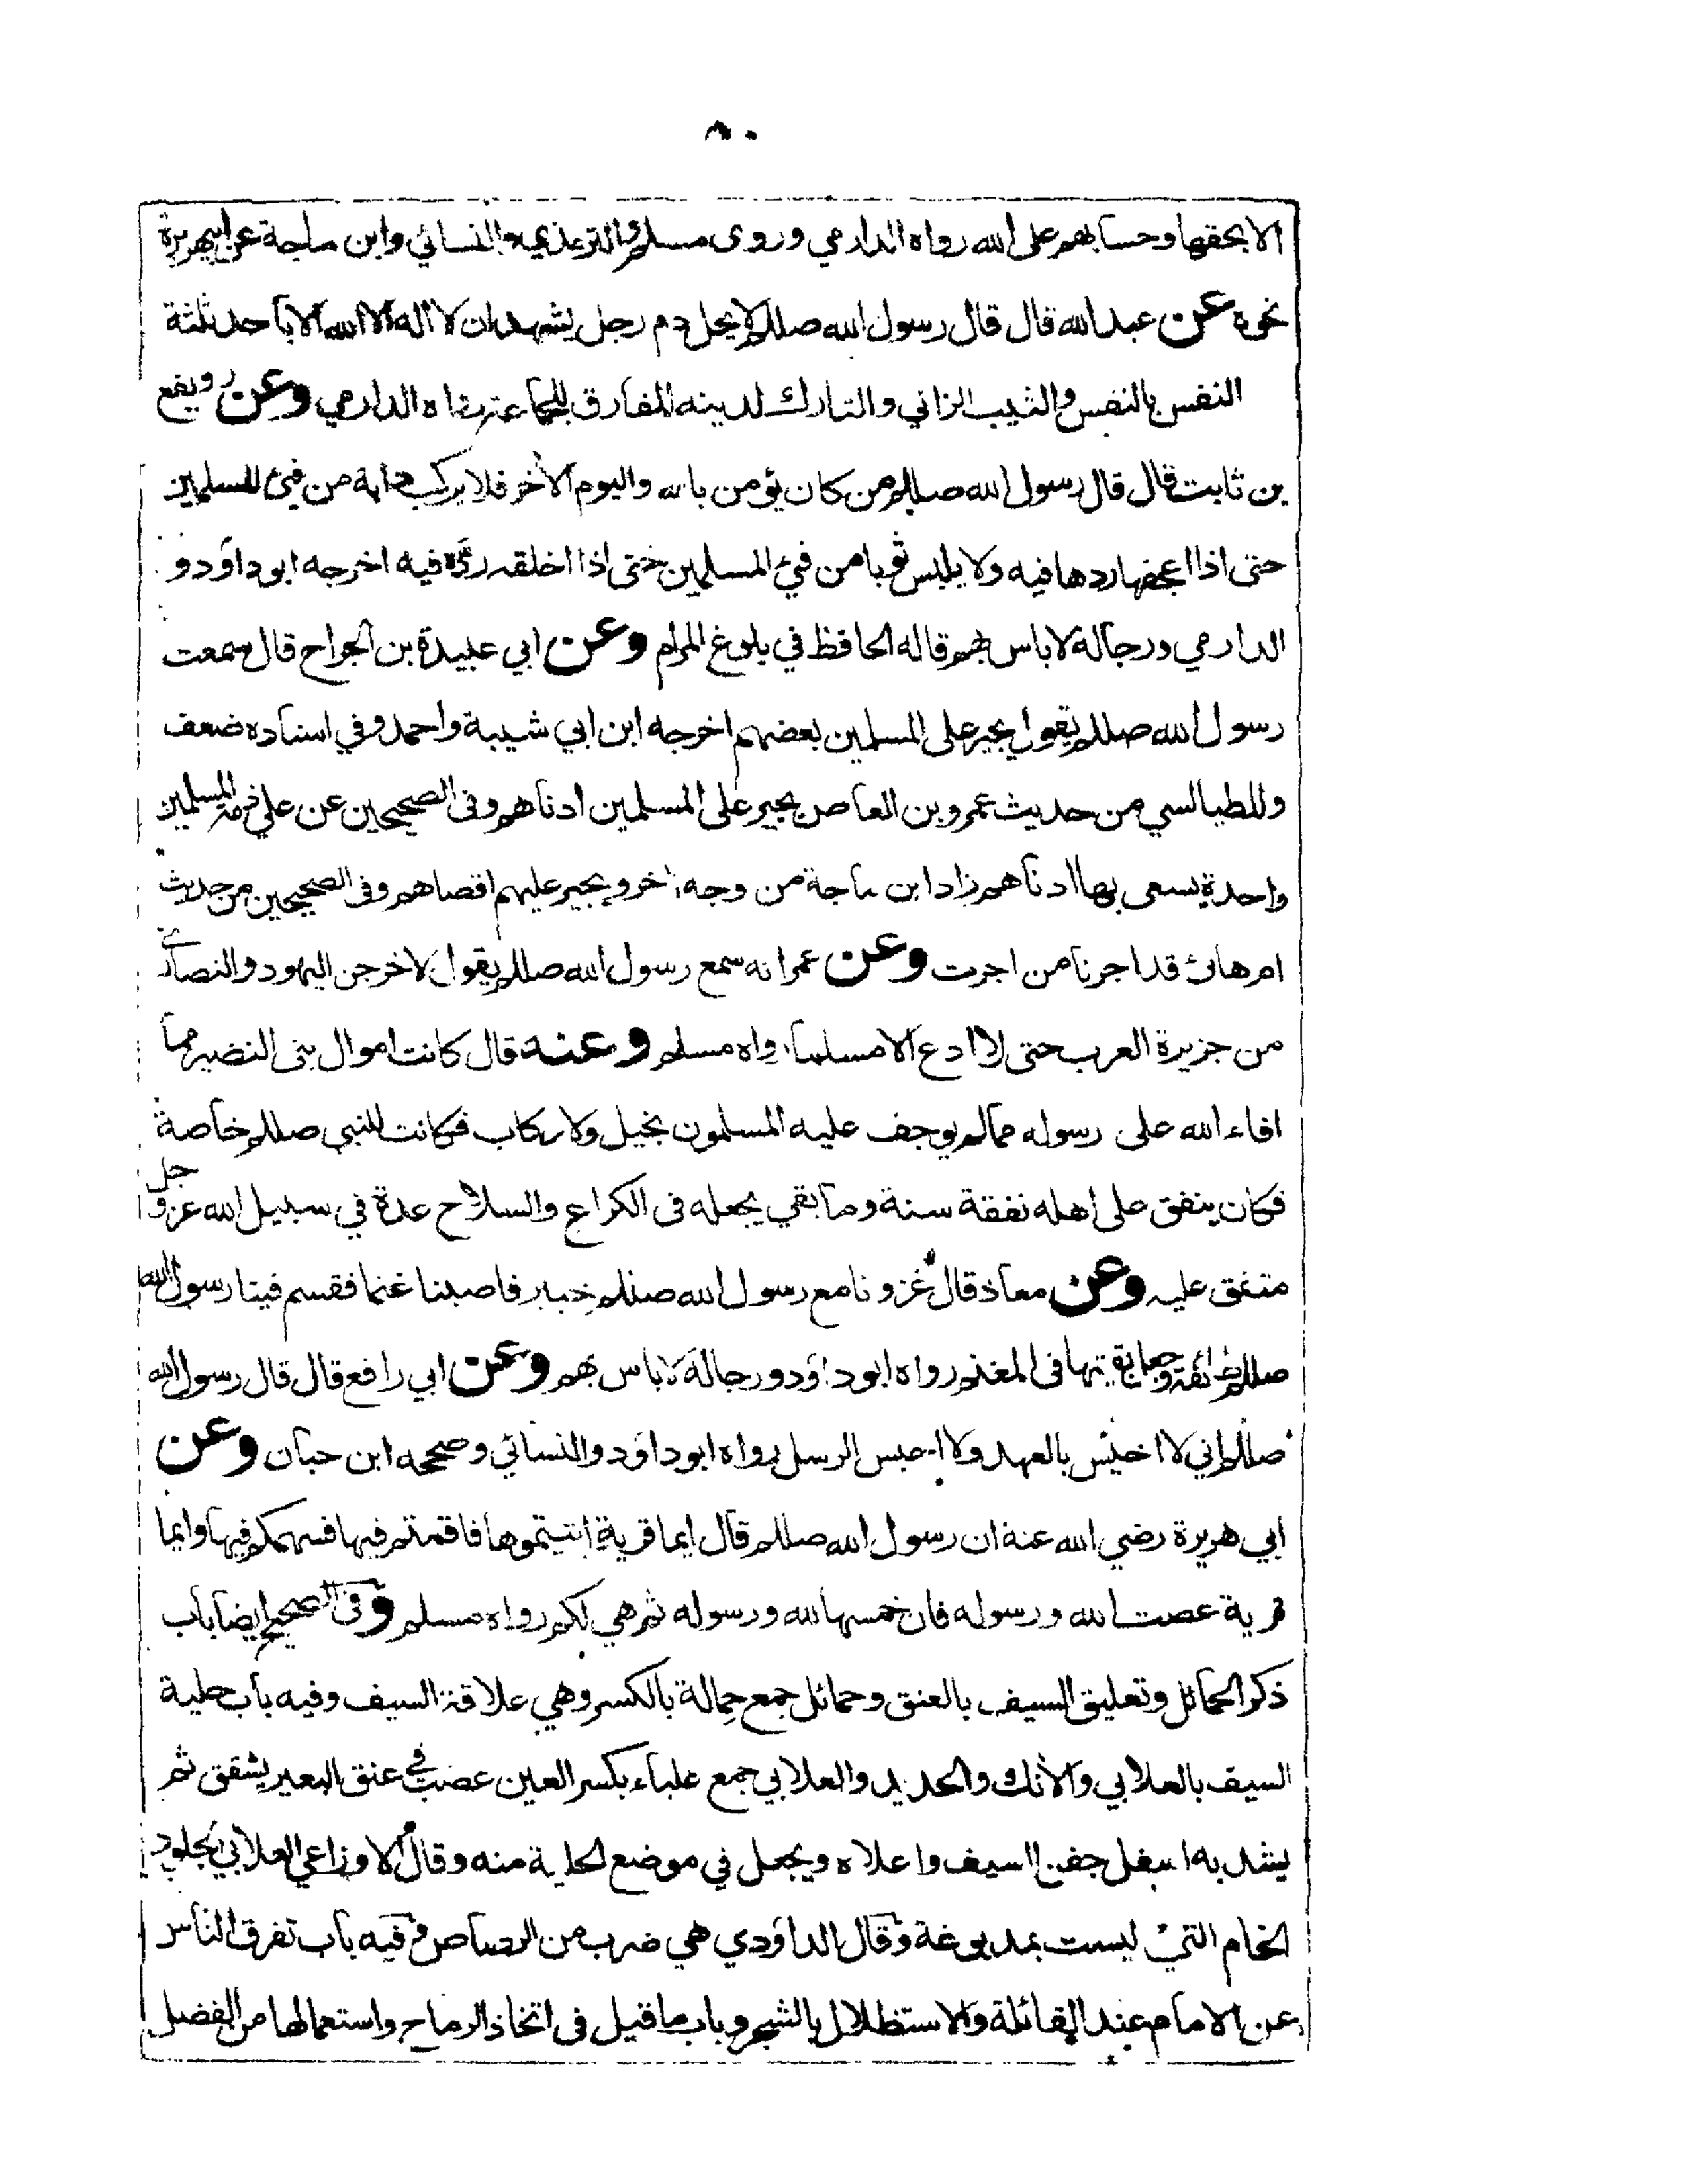 ٨٠
الا بحقها وحسابهم على الله رواه الدارمي وروى مسلم والترمذي والنسائي وابن ماجة عن ابي هريرة
نحوه عن عبد الله قال قال رسول الله صللم لا يحل دم رجل يشهد ان لا اله الا الله الا باحد ثلثة
النفس بالنفس والثيب الزاني والتارك لدينه المفارق للجماعة رواه الدارمي وعن رويفع
بن ثابت قال قال رسول الله صللم من كان يؤمن بالله واليوم الاخر فلا يركب دابة من فيئ المسلمين
حتى اذا اعجفها ردها فيه ولا يلبس ثوبا من فيئ المسلمين حتى اذا اخلقه رده فيه اخرجه ابو داود و
الدارمي ورجاله لا باس بهم قاله الحافظ في بلوغ المرام وعن ابي عبيدة بن الجراح قال سمعت
رسول الله صللم يقول يجير على المسلمين بعضهم اخرجه ابن ابي شيبة واحمد وفي اسناده ضعف
وللطيالسي من حديث عمرو بن العاص يجير على المسلمين ادناهم وفى الصحيحين عن علي ذمة المسلمين
واحدة يسعى بها ادناهم زاد ابن ماجة من وجه اخر ويجير عليهم اقصاهم وفى الصحيحين من حديث
ام هانئ قد اجرنا من اجرت وعن عمر انه سمع رسول الله صللم يقول لاخرجن اليهود والنصارى
من جزيرة العرب حتى لا ادع الا مسلما رواه مسلم وعنه قال كانت اموال بنى النضير مما
افاء الله على رسوله مما لم يوجف عليه المسلمون بخيل ولا ركاب فكانت للنبي صللم خاصة
فكان ينفق على اهله نفقة سنة وما بقي يجعله فى الكراع والسلاح عدة في سبيل الله عز وجل
متفق عليه وعن معاذ قال غزونا مع رسول الله صللم خيبر فاصبنا غنما فقسم فينا رسول الله
صللم طائفة وجعل بقيتها فى المغنم رواه ابو داود ورجاله لا باس بهم وعن ابي رافع قال قال رسول الله
صللم اني لا اخيس بالعهد ولا احبس الرسل رواه ابو داود والنسائي وصححه ابن حبان وعن
ابي هريرة رضي الله عنه ان رسول الله صللم قال ايما قرية اتيتموها فاقمتم فيها فسهمكم فيها وايما
قرية عصت الله ورسوله فان خمسها لله ورسوله ثم هي لكم رواه مسلم وفى الصحيح ايضا باب
ذكر الحمائل وتعليق السيف بالعنق وحمائل جمع حمالة بالكسر وهي علاقة السيف وفيه باب حلية
السيف بالعلابي والانك والحديد والعلابي جمع علباء بكسر العين عصب في عنق البعير يشقق ثم
يشد به اسفل جفن السيف واعلاه ويجعل في موضع الحلية منه وقال الاوزاعي العلابي الجلود
الخام التي ليست بمدبوغة وقال الداودي هي ضرب من الرصاص وفيه باب تفرق الناس
عن الامام عند القائلة والاستظلال بالشجر وباب ما قيل فى اتخاذ الرماح واستعمالها من الفضل